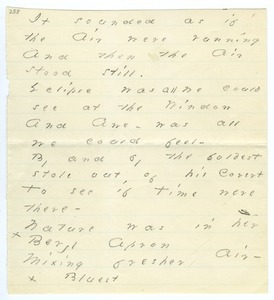 255
It sounded as if
the Air were running
And then the Air
stood still.
Eclipse was all we could
see at the Window
And Awe - was all
we could feel -
By and by the boldest
stole out of his Covert
To see if Time were
there -
Nature was in her
x Beryl Apron
Mixing fresher Air -
x Bluest